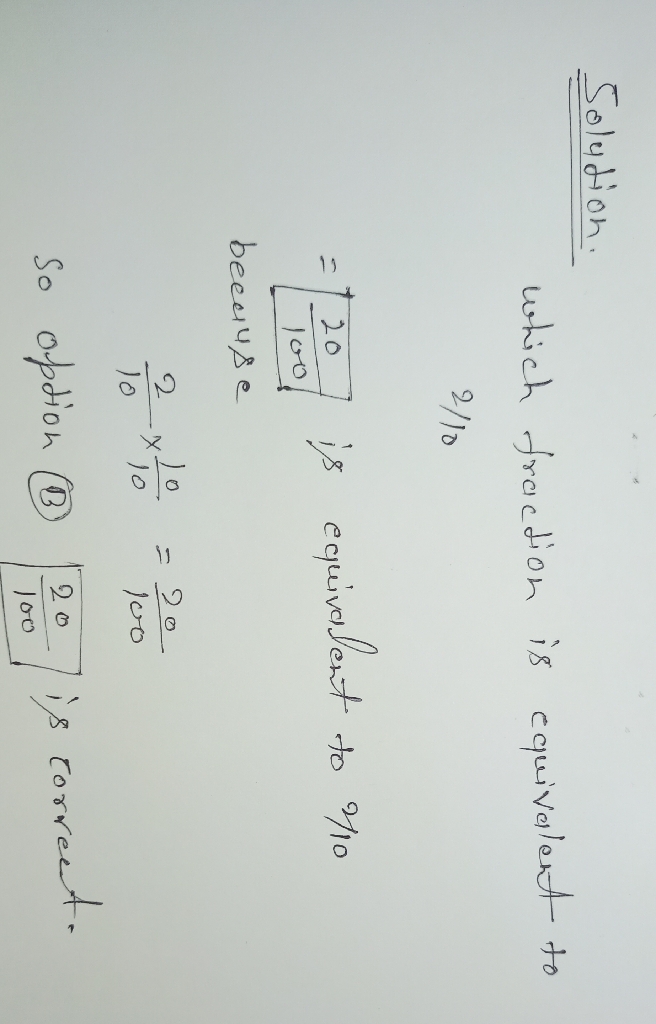 Solution.
which fraction is equivalent to
2/10
= 20/100 is equivalent to 2/10
because
2/10 × 10/10 = 20/100
So option (B) 20/100 is correct.